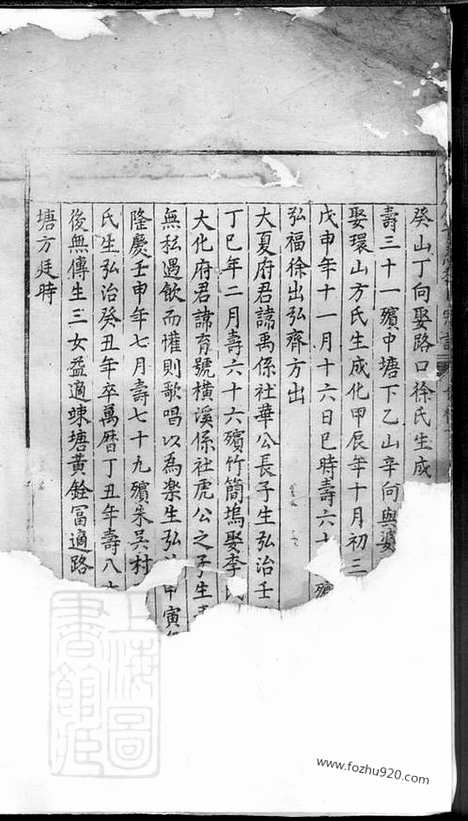 癸山丁向娶路口徐氏生成
壽三十一殯中塘下乙山辛向與婆
娶環山方氏生成化甲辰年十月初三
戊申年十一月十六日巳時壽六十 殯
弘福徐出弘齊方出
大夏府君諱禹係社華公長子生弘治壬
丁巳年二月壽六十六殯竹簡塢娶李氏
大化府君諱育號橫溪係社虎公之子生
無私遇飲而懽則歌唱以為楽生弘 甲寅
隆慶壬申年七月壽七十九殯朱吴村
氏生弘治癸丑年卒萬暦丁丑年壽八十
後無傳生三女益適竦塘黃銓冨適路
塘方廷時
上海圖書館藏
www.fozhu920.com